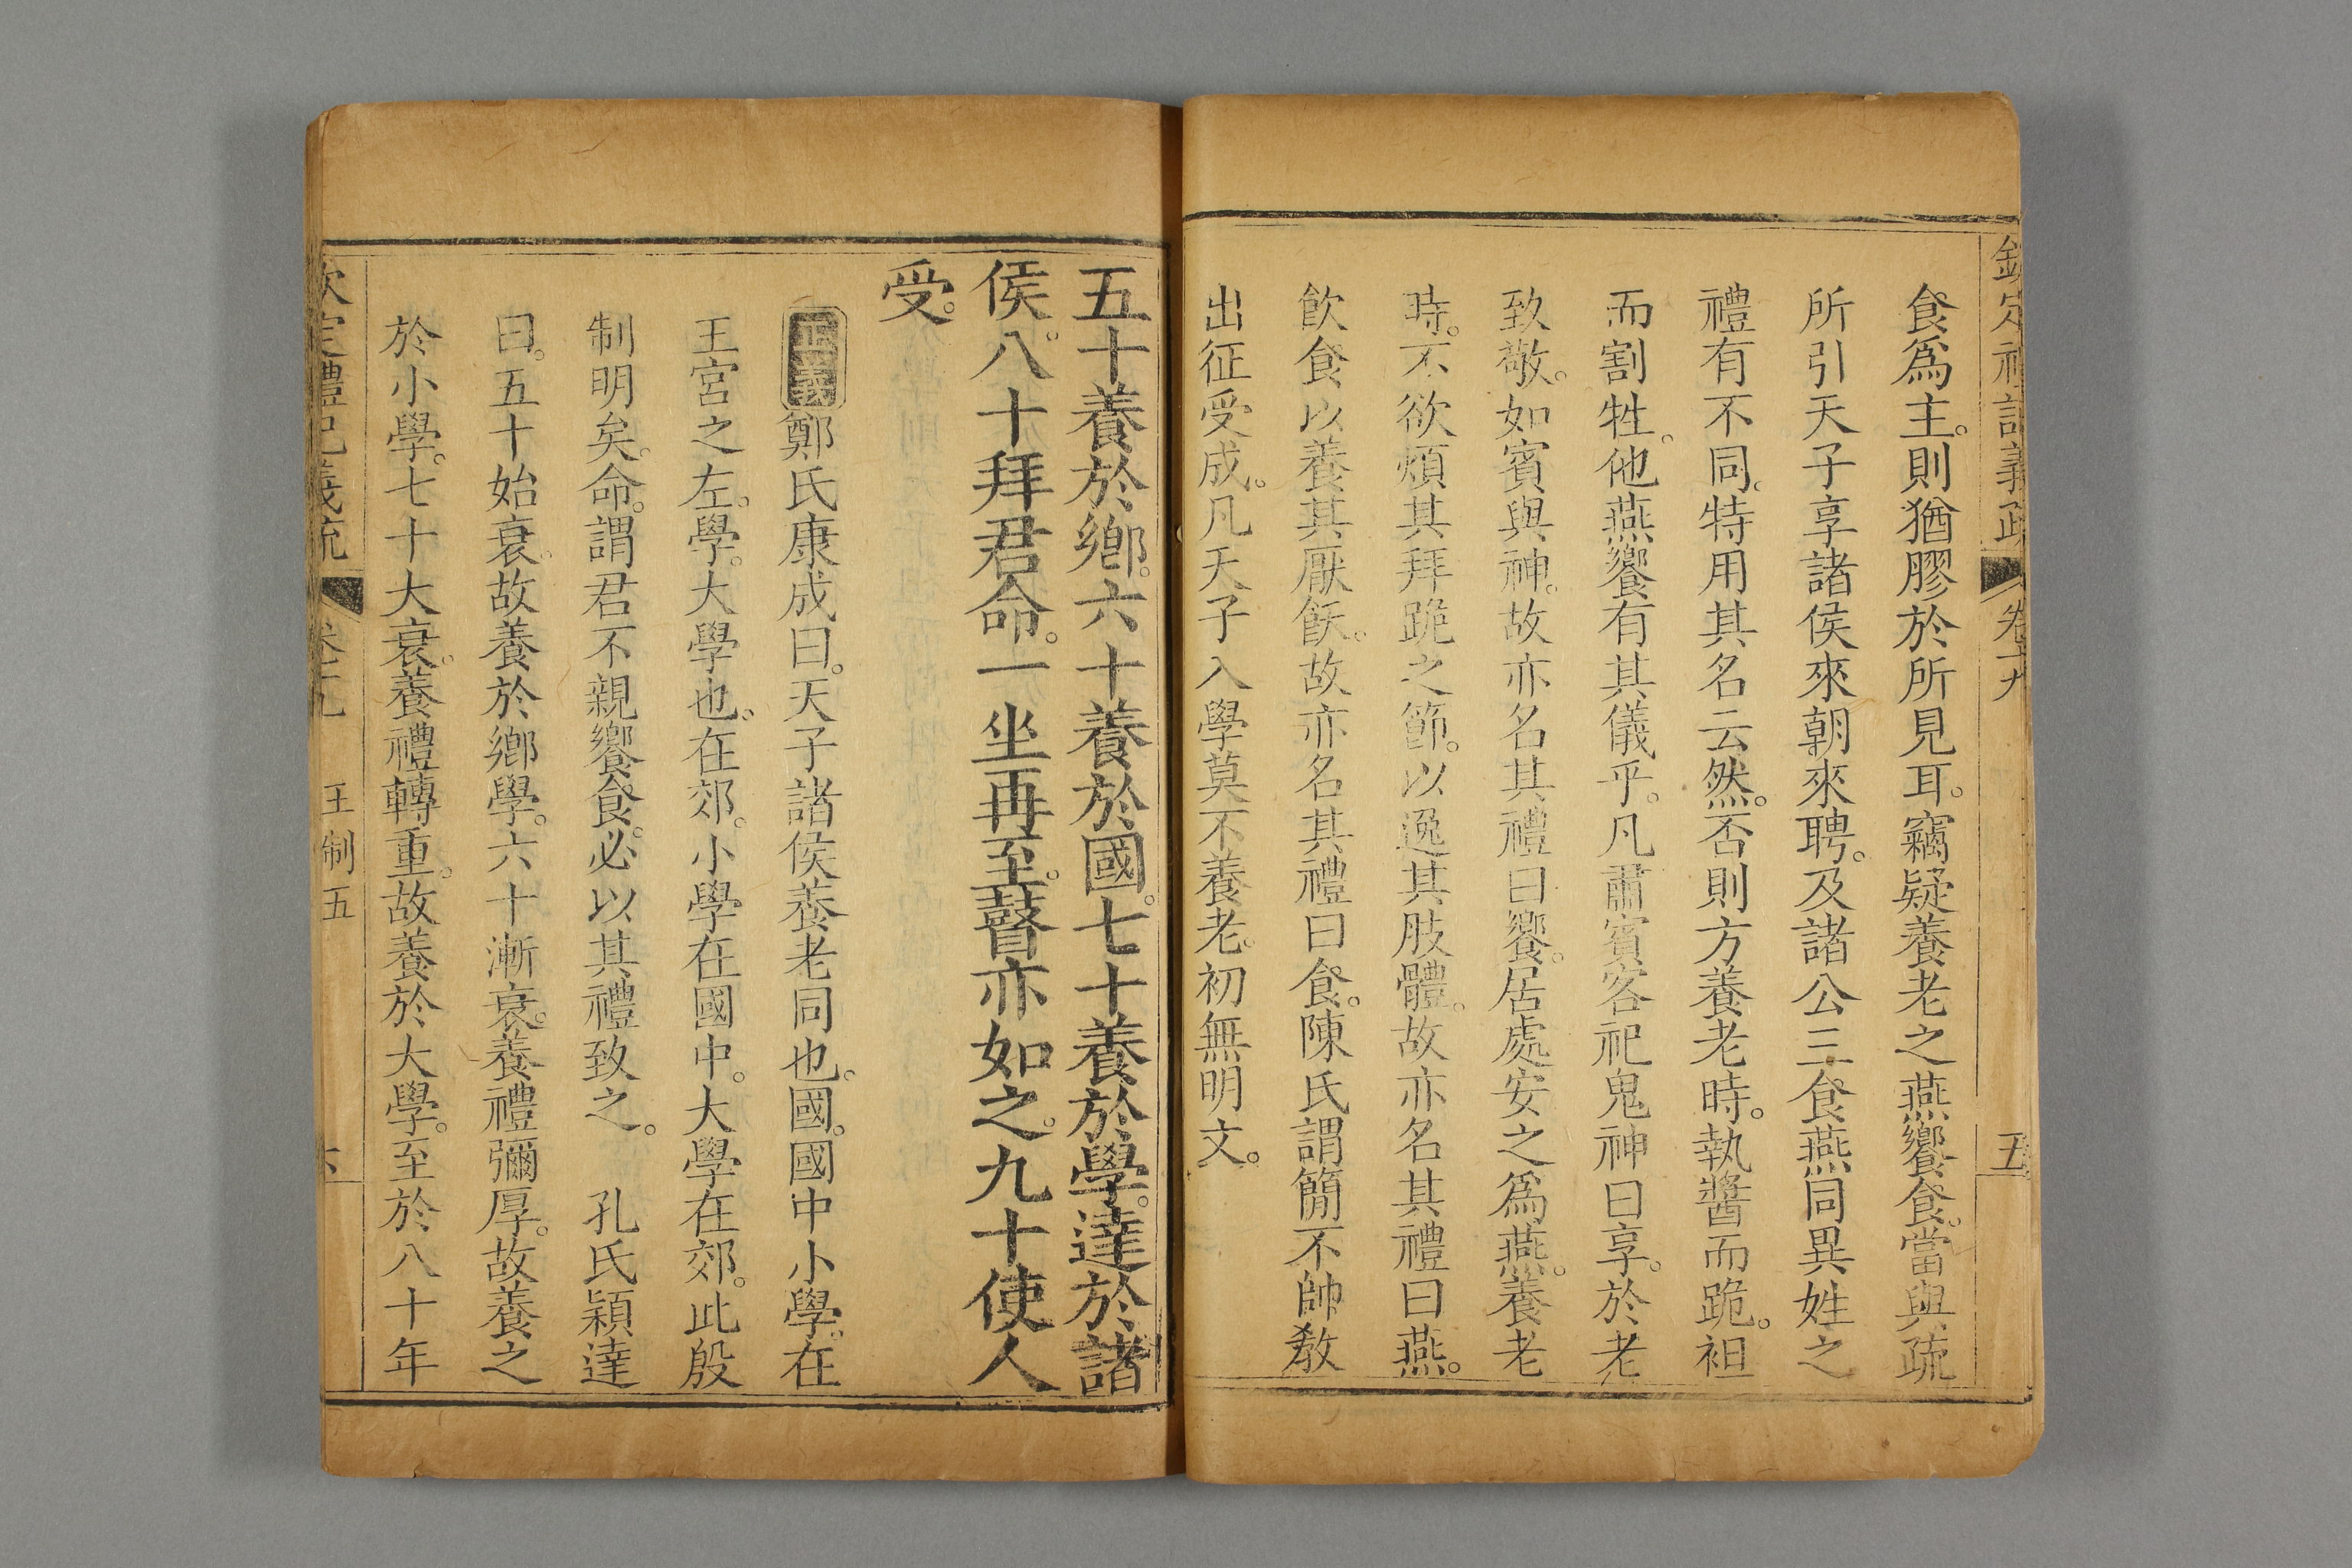 欽定禮記義疏 卷十九 五
食爲主。則猶膠於所見耳。竊疑養老之燕饗食。當與疏
所引天子享諸侯來朝來聘。及諸公三食燕同異姓之
禮有不同。特用其名云然。否則方養老時。執醬而跪。袒
而割牲。他燕饗有其儀乎。凡肅賓客祀鬼神曰享。於老
致敬。如賓與神。故亦名其禮曰饗。居處安之爲燕。養老
時。不欲煩其拜跪之節。以逸其肢體。故亦名其禮曰燕。
飲食以養其厭飫。故亦名其禮曰食。陳氏謂簡不帥敎
出征受成。凡天子入學莫不養老。初無明文。
五十養於鄉。六十養於國。七十養於學。達於諸
侯。八十拜君命。一坐再至。瞽亦如之。九十使人
受。
正義鄭氏康成曰。天子諸侯養老同也。國。國中小學。在
王宮之左。學。大學也。在郊。小學在國中。大學在郊。此殷
制明矣。命。謂君不親饗食。必以其禮致之。 孔氏穎達
曰。五十始衰。故養於鄉學。六十漸衰。養禮彌厚。故養之
於小學。七十大衰。養禮轉重。故養於大學。至於八十年
欽定禮記義疏 卷十九 王制五 六